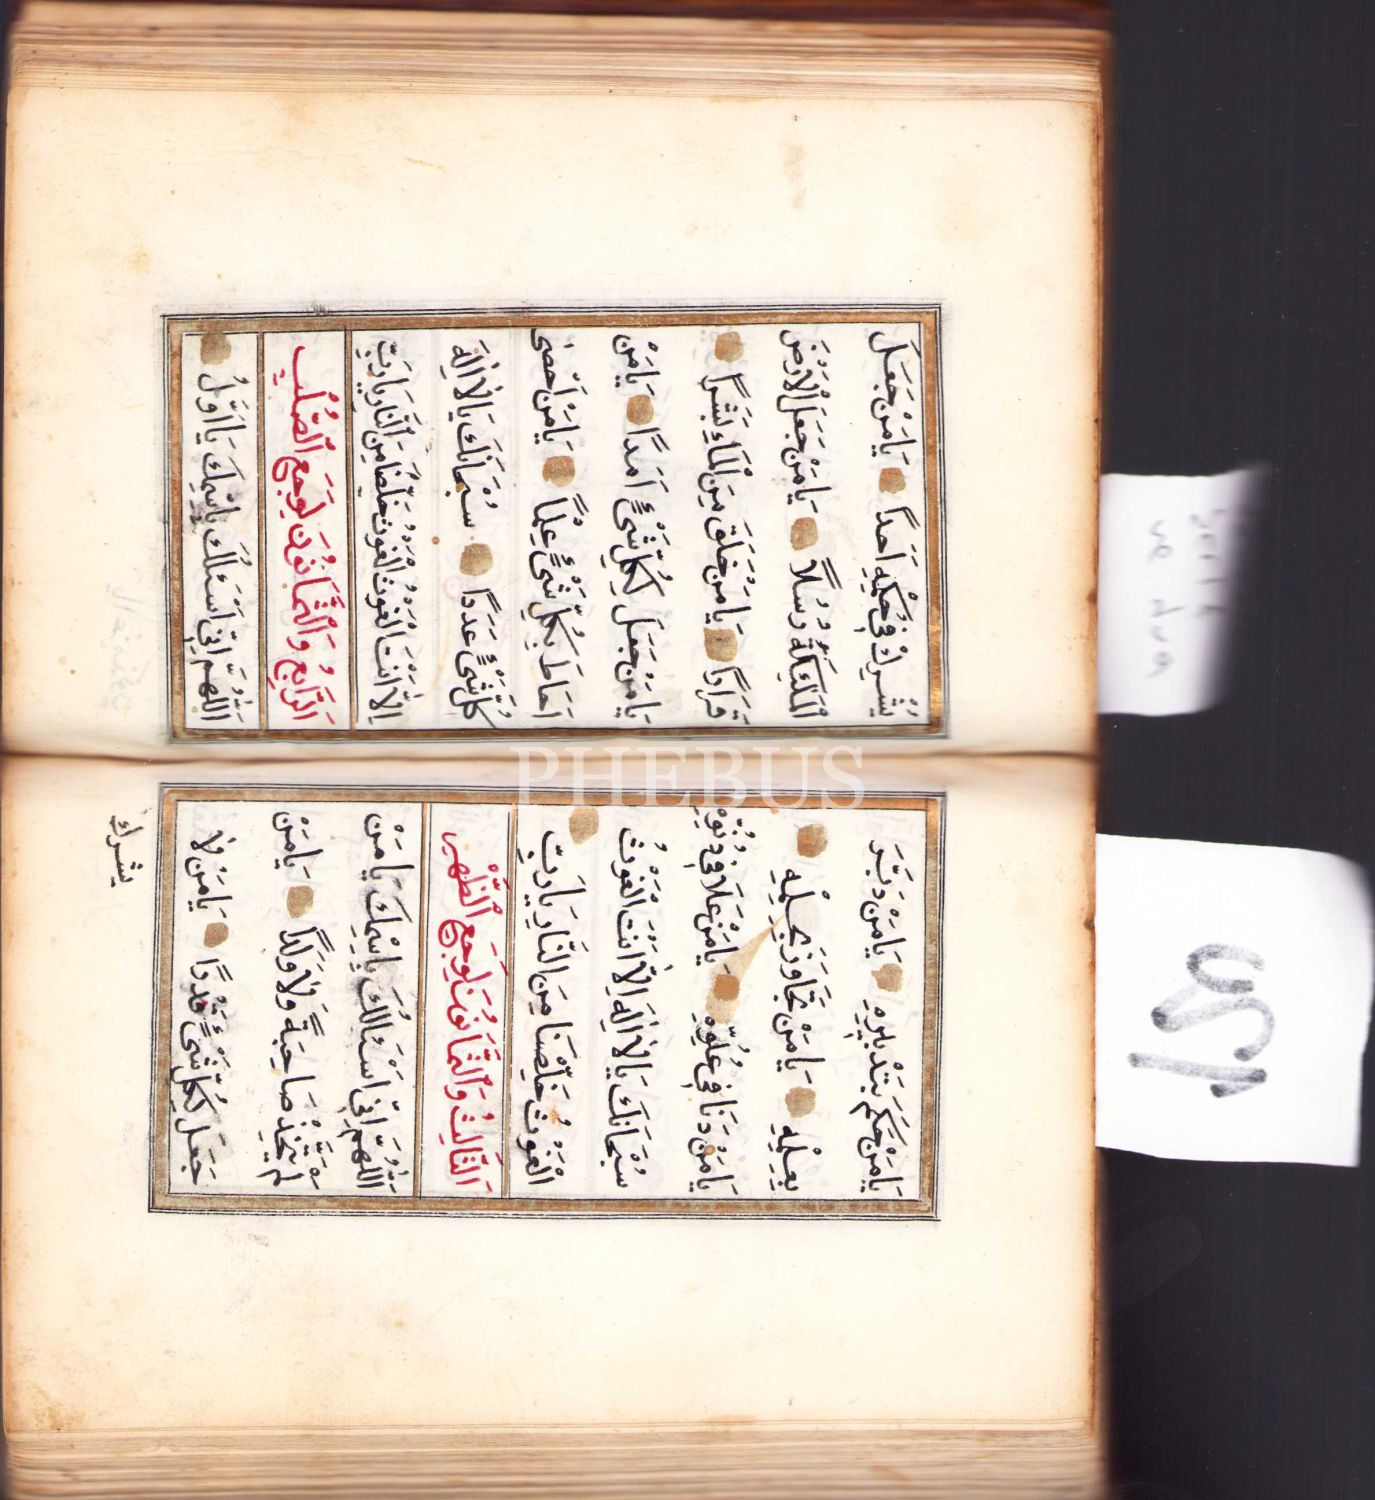 يَا مَنْ حَكَمَ بَتَدْبيرِهِ يَا مَنْ دَبَّرَ
بِعِلْمِهِ يَا مَنْ تَجَاوَزَ بِحِلْمِهِ
يَا مَنْ دَنَا فِي عُلُوِّهِ يَا مَنْ عَلَا فِي دُنُوِّهِ
سُبْحَانَكَ يَا لَا اِلٰهَ اِلَّا اَنْتَ الْغَوْثُ
الْغَوْثُ خَلِّصْنَا مِنَ النَّارِ يَا رَبِّ
اَلثَّالِثُ وَالثَّمَانُونَ لِوَجَعِ الظَّهْرِ
اَللّٰهُمَّ اِنِّي اَسْئَالُكَ بِاِسْمِكَ يَا مَنْ
لَمْ يَتَّخِذْ صَاحِبَةً وَلَا وَلَدًا يَا مَنْ
جَعَلَ لِكُلِّ شَيْءٍ قَدْرًا يَا مَنْ لَا
يشرك
يُشْرِكُ فِي حُكْمِهِ اَحَدًا يَا مَنْ جَعَلَ
الْمَلٰئِكَةَ رُسُلًا يَا مَنْ جَعَلَ الْاَرْضَ
قَرَارًا يَا مَنْ خَلَقَ مِنَ الْمَاءِ بَشَرًا
يَا مَنْ جَعَلَ لِكُلِّ شَيْءٍ اَمَدًا يَا مَنْ
اَحَاطَ بِكُلِّ شَيْءٍ عِلْمًا يَا مَنْ اَحْصٰى
كُلَّ شَيْءٍ عَدَدًا سُبْحَانَكَ يَا لَا اِلٰهَ
اِلَّا اَنْتَ الْغَوْثُ الْغَوْثُ خَلِّصْنَا مِنَ النَّارِ يَا رَبِّ
اَلرَّابِعُ وَالثَّمَانُونَ لِوَجَعِ الصُّلْبِ
اَللّٰهُمَّ اِنِّي اَسْئَلُكَ بِاسْمِكَ يَا اَوَّلُ
PHEBUS
ve dua
151